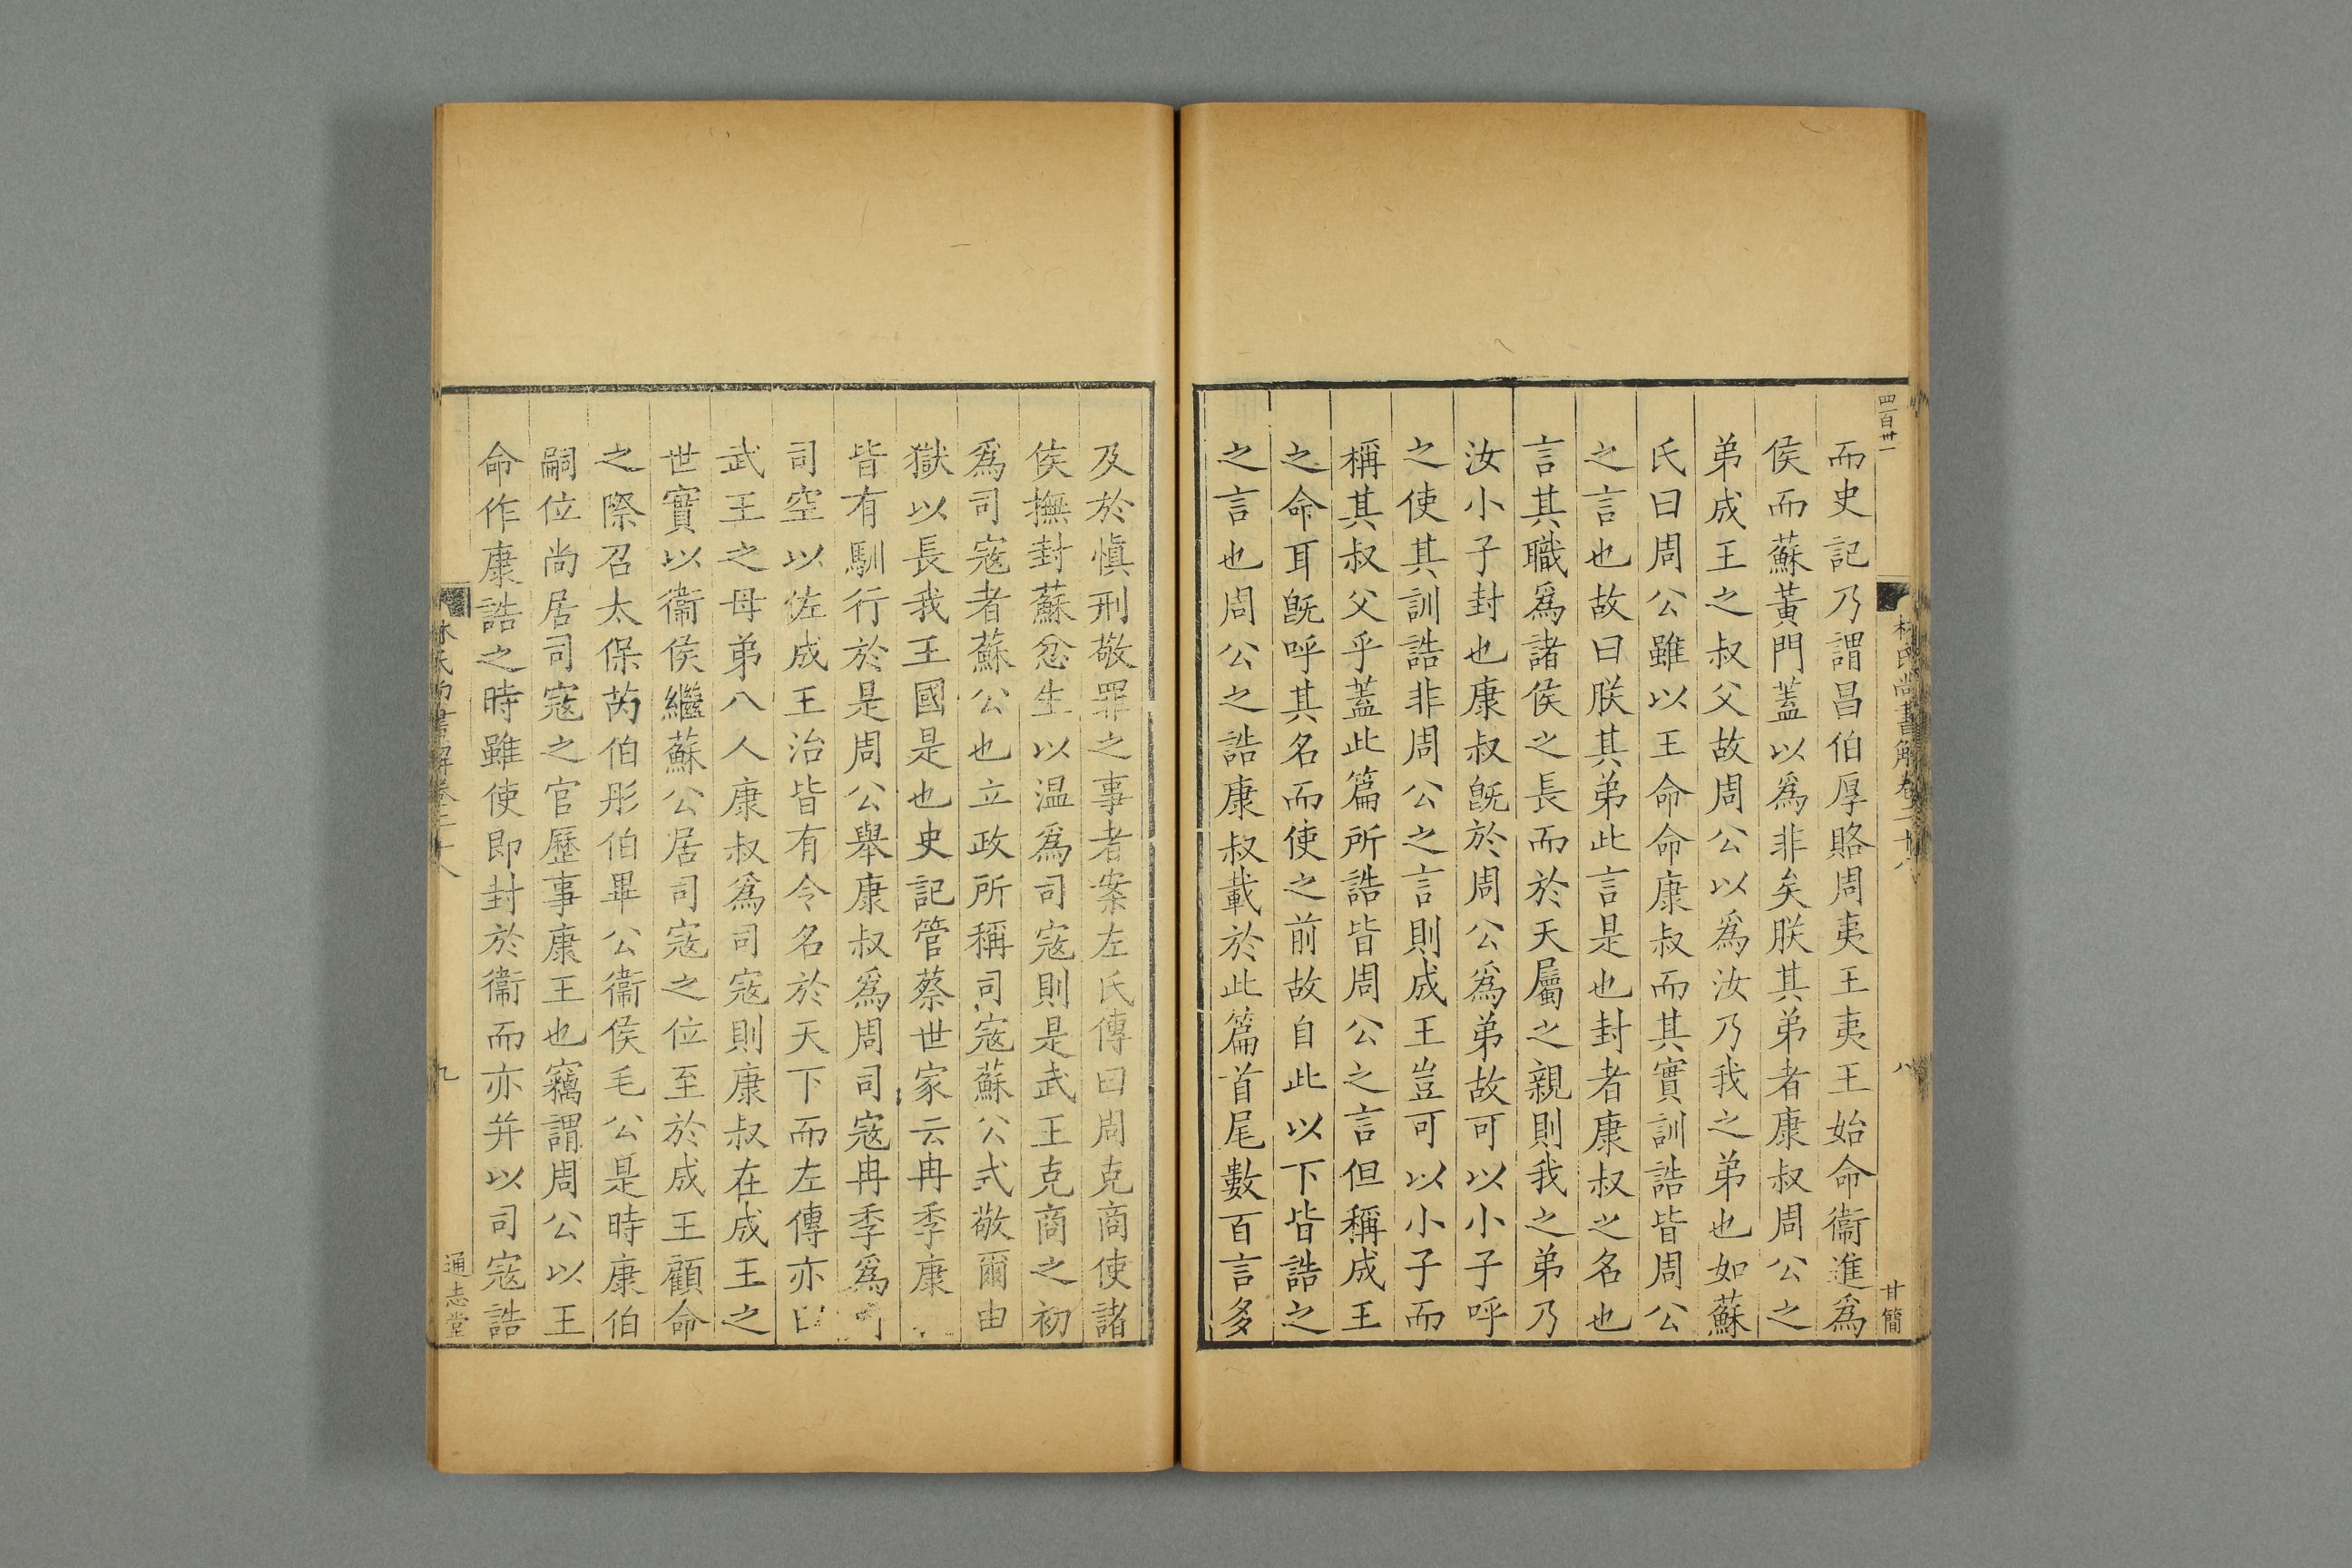 四百卅一
林氏尚書解卷二十八
八
甘簡
而史記乃謂昌伯厚賂周夷王夷王始命衞進爲
侯而蘇黃門蓋以爲非矣朕其弟者康叔周公之
弟成王之叔父故周公以爲汝乃我之弟也如蘇
氏曰周公雖以王命命康叔而其實訓誥皆周公
之言也故曰朕其弟此言是也封者康叔之名也
言其職爲諸侯之長而於天屬之親則我之弟乃
汝小子封也康叔旣於周公爲弟故可以小子呼
之使其訓誥非周公之言則成王豈可以小子而
稱其叔父乎蓋此篇所誥皆周公之言但稱成王
之命耳旣呼其名而使之前故自此以下皆誥之
之言也周公之誥康叔載於此篇首尾數百言多
及於愼刑敬罪之事者案左氏傳曰周克商使諸
侯撫封蘇忿生以温爲司寇則是武王克商之初
爲司寇者蘇公也立政所稱司寇蘇公式敬爾由
獄以長我王國是也史記管蔡世家云冉季康
皆有馴行於是周公舉康叔爲周司寇冉季爲
司空以佐成王治皆有令名於天下而左傳亦
武王之母弟八人康叔爲司寇則康叔在成王之
世實以衞侯繼蘇公居司寇之位至於成王顧命
之際召太保芮伯彤伯畢公衞侯毛公是時康伯
嗣位尚居司寇之官歷事康王也竊謂周公以王
命作康誥之時雖使即封於衞而亦并以司寇誥
林氏尚書解卷二十八
九
通志堂